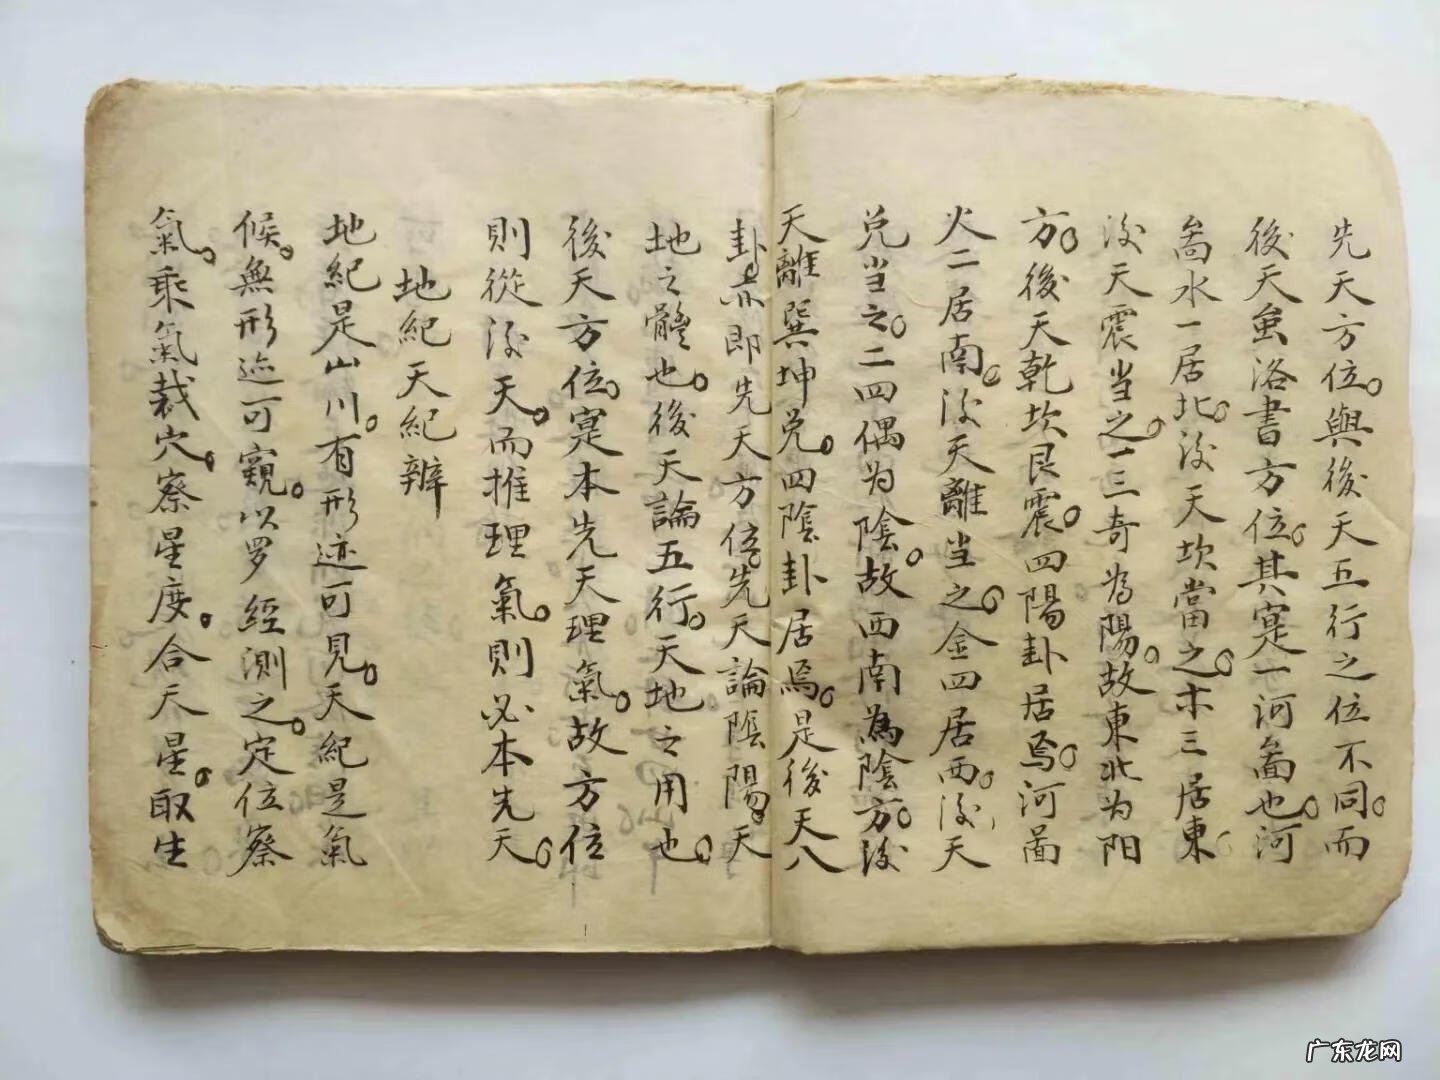 先天方位。與後天五行之位不同。而
後天虽洛書方位。其寔一河畣也。河
畣水一居北。後天坎當之。木三居東。
後天震当之。一三奇為陽。故東北为阳
方。後天乾坎艮震。四陽卦居焉。河畣
火二居南。後天離当之。金四居西。後天
兑当之。二四偶为陰。故西南為陰方。後
天離巽坤兑。四陰卦居焉。是後天八
卦。亦即先天方位。先天論陰陽。天
地之體也。後天論五行。天地之用也。
後天方位。寔本先天理氣。故方位
則從後天。而推理氣。則必本先天。
地紀天紀辨
地紀是山川。有形迹可見。天紀是氣
候。無形迹可窺。以罗經測之。定位察
氣。乘氣裁穴。察星度。合天星。取生
广东龙网